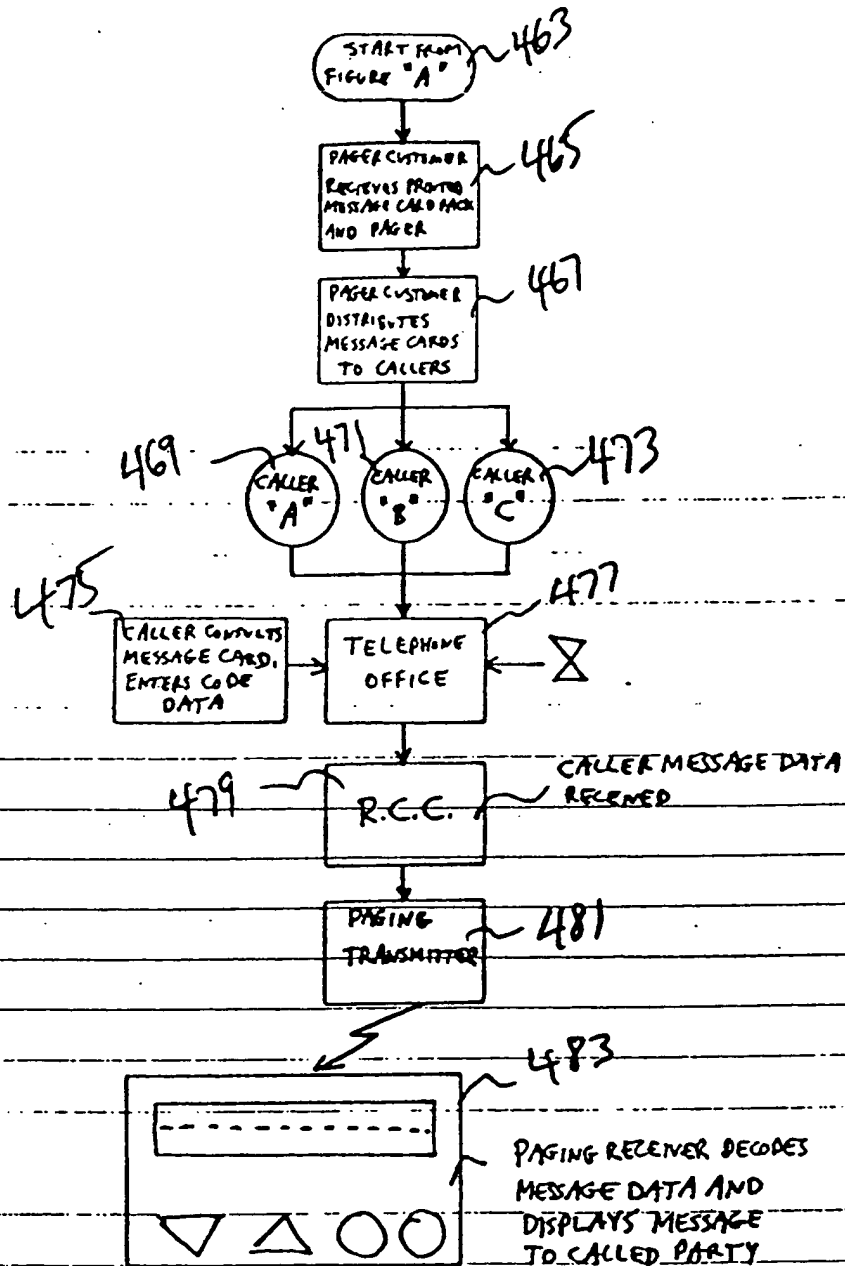 START FROM
FIGURE "A"
463
PAGER CUSTOMER
RECIEVES PRINTED
MESSAGE CARD PACK
AND PAGER
465
PAGER CUSTOMER
DISTRIBUTES
MESSAGE CARDS
TO CALLERS
467
469
CALLER
"A"
471
CALLER
"B"
CALLER
"C"
473
475
CALLER CONSULTS
MESSAGE CARD,
ENTERS CODE
DATA
TELEPHONE
OFFICE
477
479
R.C.C.
CALLER MESSAGE DATA
RECEIVED
PAGING
TRANSMITTER
481
483
PAGING RECEIVER DECODES
MESSAGE DATA AND
DISPLAYS MESSAGE
TO CALLED PARTY